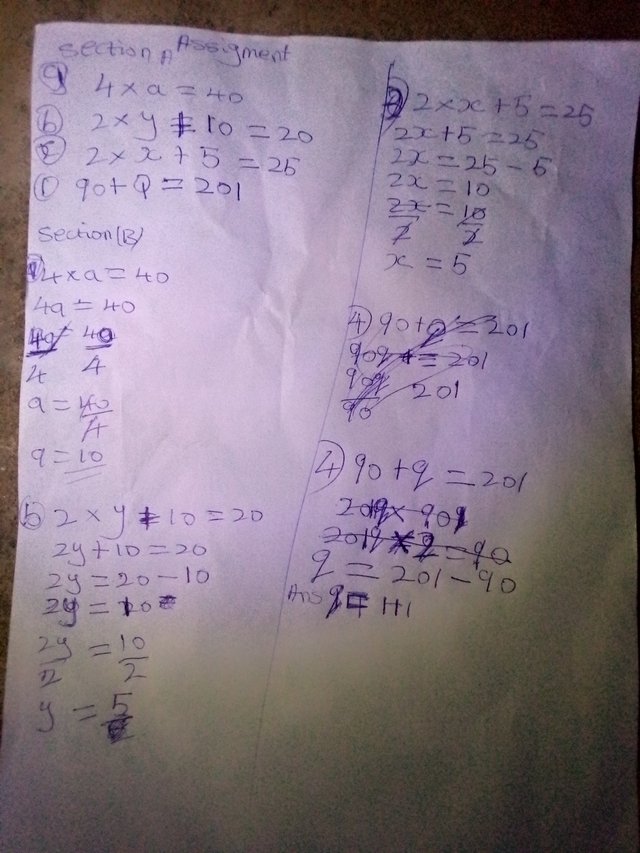 Section A Assigment
a 4 × a = 40
b 2 × y + 10 = 20
c 2 × x + 5 = 25
90 + Q = 201
Section (B)
4 × a = 40
4a = 40
4a 40
4 4
a = 40
4
a = 10
b 2 × y + 10 = 20
2y + 10 = 20
2y = 20 - 10
2y = 10
2y = 10
2 2
y = 5
2 × x + 5 = 25
2x + 5 = 25
2x = 25 - 5
2x = 10
2x = 10
2 2
x = 5
4 90 + q = 201
90q = 201
90q 201
90
4 90 + q = 201
q = 201 - 90
Ans q = 111